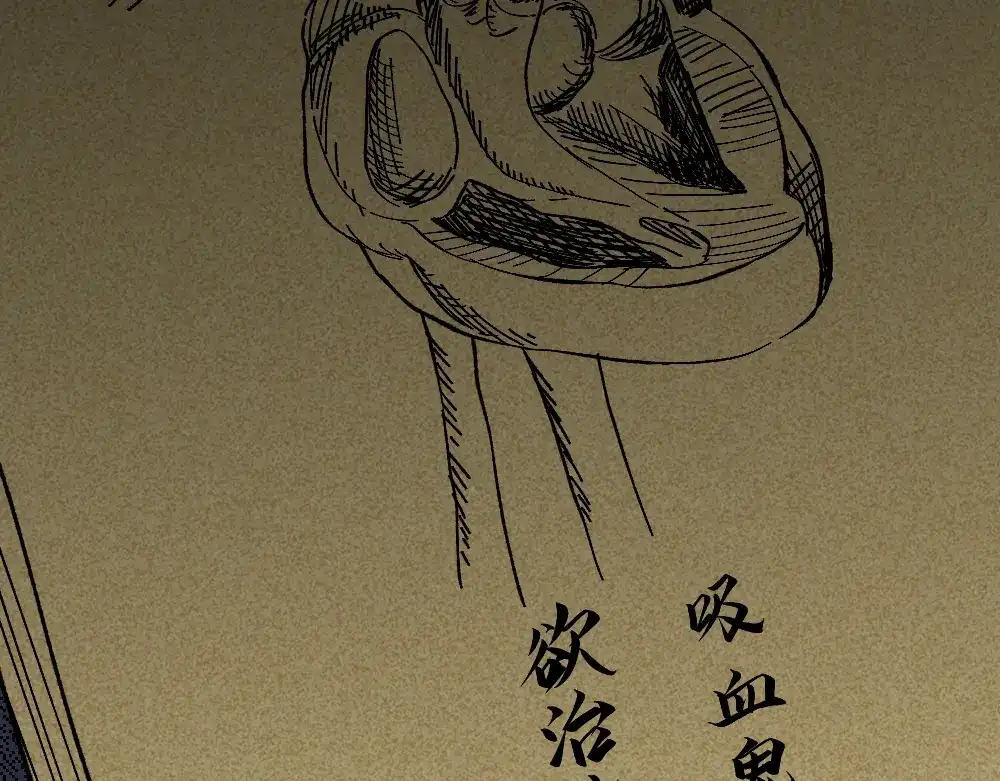 吸血鬼
欲治